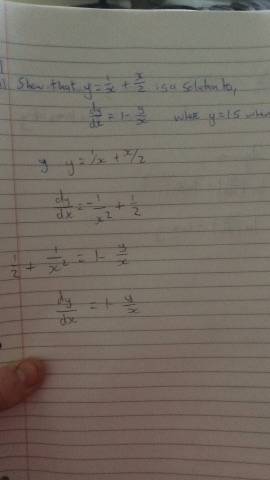 Show that y = 1/x + x/2 is a solution to,
dy/dx = 1 - y/x where y = 1.5 when
y y = 1/x + x/2
dy/dx = -1/x² + 1/2
1/2 + 1/x² = 1 - y/x
dy/dx = 1 - y/x